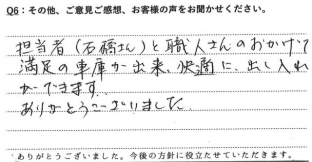 Q6：その他、ご意見ご感想、お客様の声をお聞かせください。
担当者（石橋さん）と職人さんのおかげで
満足の車庫が出来、快適に、出し入れ
ができます。
ありがとうございました
ありがとうございました。今後の方針に役立たせていただきます。